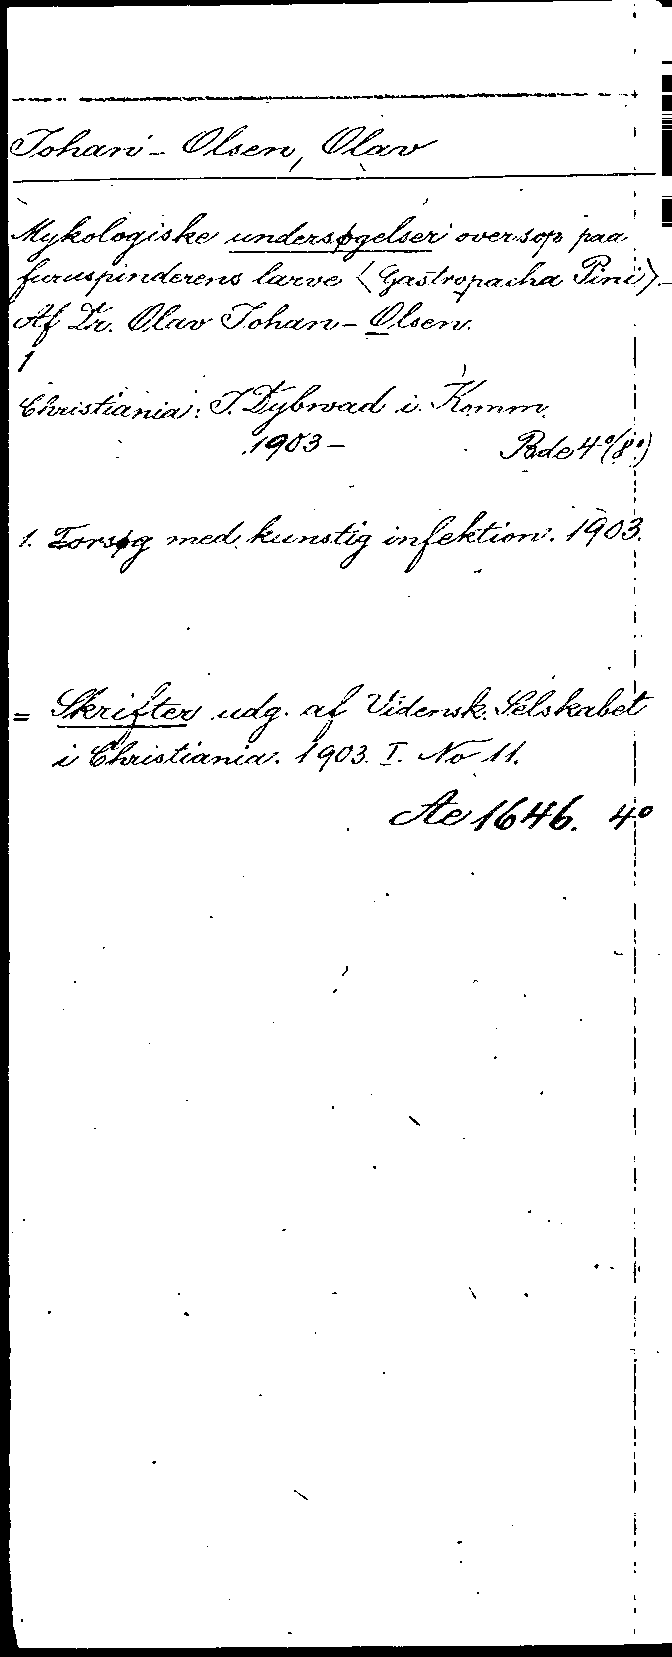 Johan-Olsen, Olav
Mykologiske undersøgelser over sop paa
furuspinderens larve (Gastropacha Pini).-
Af Dr. Olav Johan-Olsen.
1
Christiania: J. Dybwad i Komm.
1903-
4°(8°)
1. Forsøg med kunstig infektion. 1903.
= Skrifter udg. af Vidensk. Selskabet
i Christiania. 1903. I. No 11.
Ae 1646. 4°